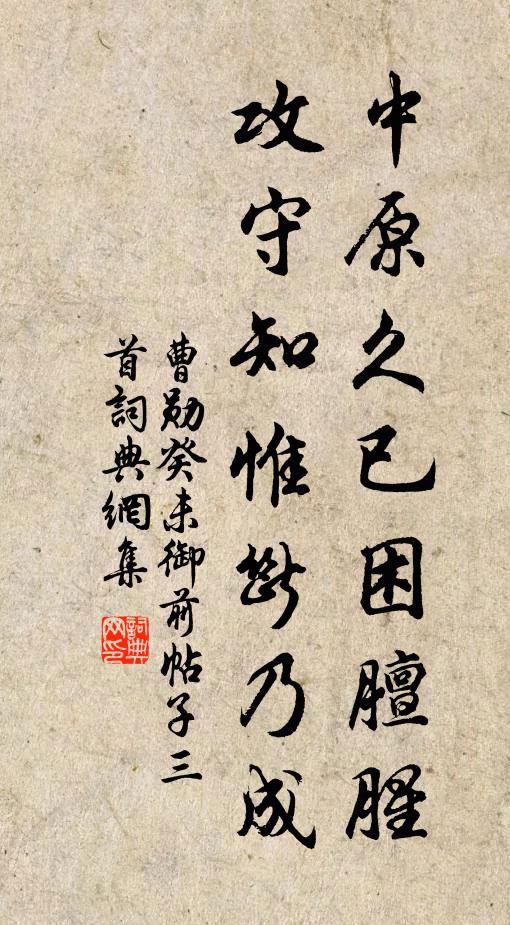 中原久已困膻腥
攻守知惟斷乃成
曹勛癸未御前帖子三
首詞典網集
詞典网印